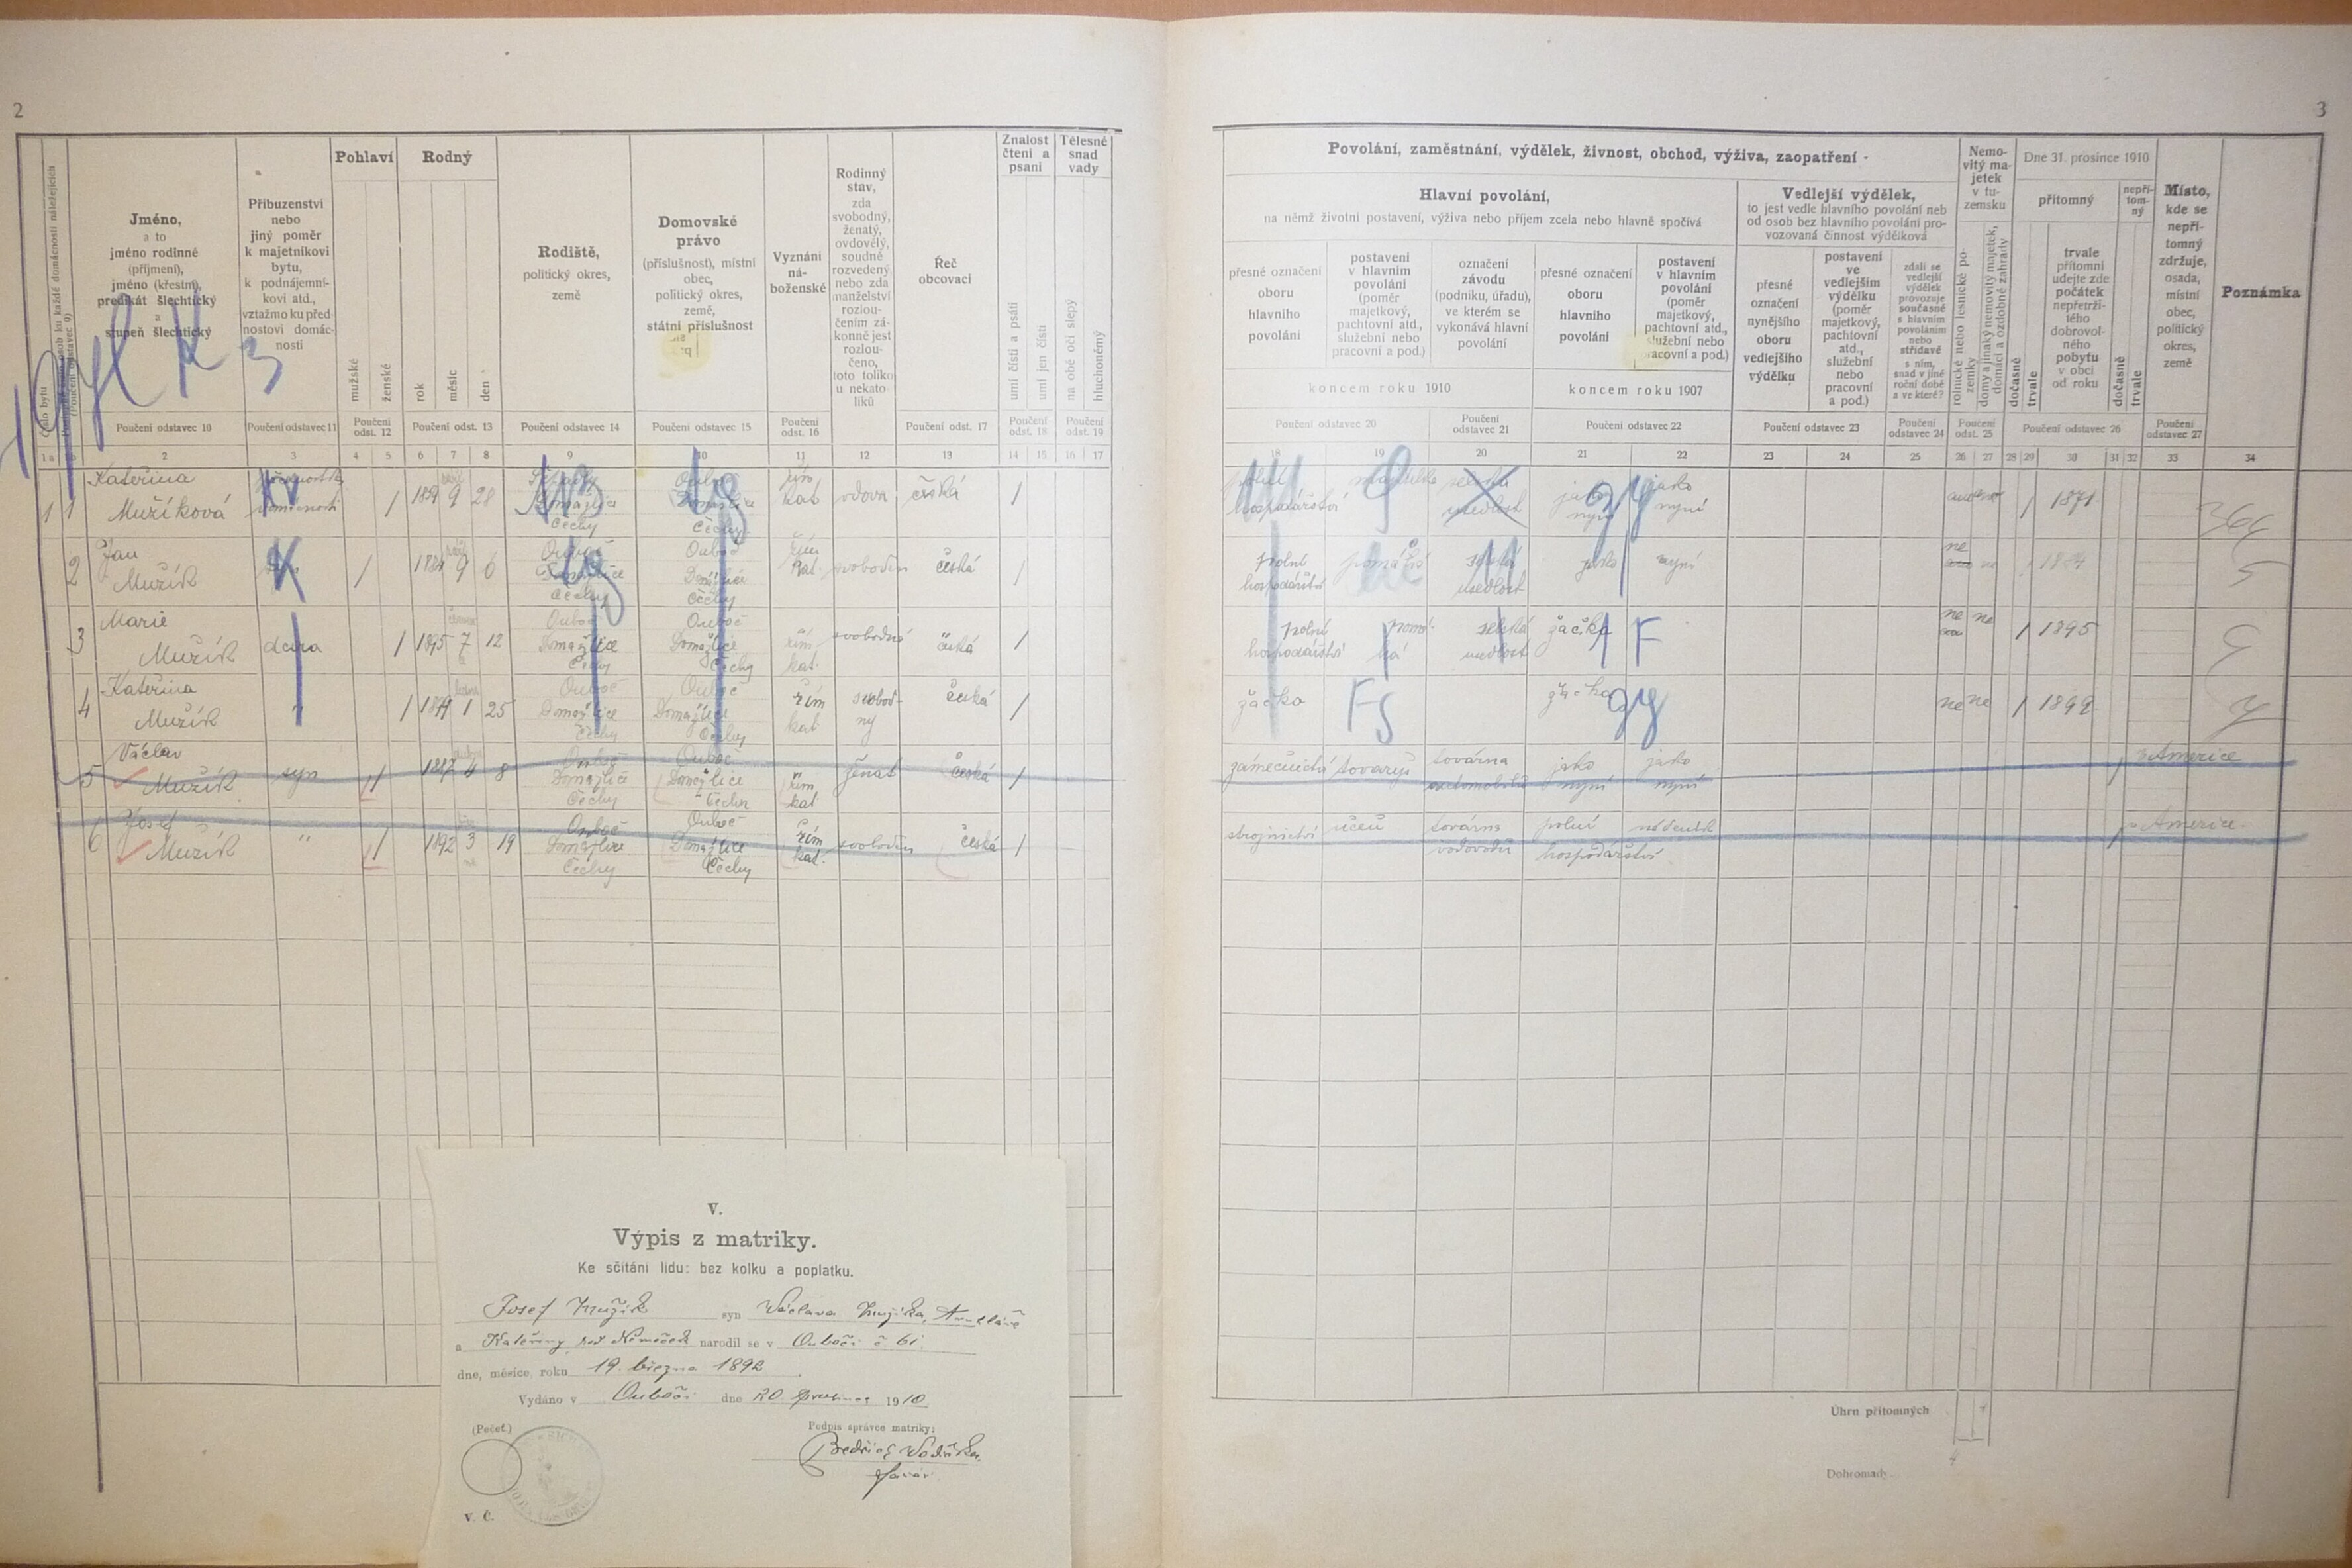 2
Číslo bytu
Jméno,
a to
jméno rodinné
(příjmení),
jméno (křestní),
predikát šlechtický
a
stupeň šlechtický
Poučení odstavec 10
Příbuzenství
nebo
jiný poměr
k majetníkovi
bytu,
k podnájemní-
kovi atd.,
vztažmo ku před-
nostovi domác-
nosti
Poučení odstavec 11
Pohlaví
mužské
ženské
Poučení
odst. 12
Rodný
rok
měsíc
den
Poučení odst. 13
Rodiště,
politický okres,
země
Poučení odstavec 14
Domovské
právo
(příslušnost), místní
obec,
politický okres,
země,
státní příslušnost
Poučení odstavec 15
Vyznání
ná-
boženské
Poučení
odst. 16
Rodinný
stav,
zda
svobodný,
ženatý,
ovdovělý,
soudně
rozvedený,
nebo zda
manželství
rozlou-
čením zá-
konně jest
rozlou-
čeno,
toto toliko
u nekato-
líků
Řeč
obcovací
Poučení odst. 17
Znalost
čtení a
psaní
umí čísti a psáti
umí jen čísti
Poučení
odst. 18
Tělesné
snad
vady
na obě oči slepý
hluchoněmý
Poučení
odst. 19
1a 1b 2 3 4 5 6 7 8 9 10 11 12 13 14 15 16 17
1 1 Kateřina
Mužíková
1 1859 9 28
Domažlice
Čechy
Ouboč
Domažlice
Čechy
řím
kat
vdova
česká
1
2 Jan
Mužík
1 1884 9 6
Ouboč
Domažlice
Čechy
Ouboč
Domažlice
Čechy
řím
kat.
svoboden
česká
1
3 Marie
Mužík
dcera
1 1895 7 12
Ouboč
Domažlice
Čechy
Ouboč
Domažlice
Čechy
řím.
kat.
svobodná
česká
1
4 Kateřina
Mužík
"
1 1899 1 25
Ouboč
Domažlice
Čechy
Ouboč
Domažlice
Čechy
řím
kat
svobod-
ný
česká
1
5 Václav
Mužík
syn
1 1887 4 8
Ouboč
Domažlice
Čechy
Ouboč
Domažlice
Čechy
řím
kat
ženat
česká
1
6 Josef
Mužík
"
1 1892 3 19
Ouboč
Domažlice
Čechy
Ouboč
Domažlice
Čechy
řím
kat.
svoboden
česká
1
V.
Výpis z matriky.
Ke sčítání lidu: bez kolku a poplatku.
Josef Mužík syn Václava Mužíka,
a Kateřiny roz Němeček narodil se v Ouboči č. 61
dne, měsíce, roku 19. března 1892
Vydáno v Ouboči dne 20 prosince 1910
(Pečeť.)
Podpis správce matriky:
farář
V. Č.
3
Povolání, zaměstnání, výdělek, živnost, obchod, výživa, zaopatření
Hlavní povolání,
na němž životní postavení, výživa nebo příjem zcela nebo hlavně spočívá
přesné označení
oboru
hlavního
povolání
postavení
v hlavním
povolání
(poměr
majetkový,
pachtovní atd.,
služební nebo
pracovní a pod.)
označení
závodu
(podniku, úřadu),
ve kterém se
vykonává hlavní
povolání
koncem roku 1910
Poučení odstavec 20
Poučení
odstavec 21
přesné označení
oboru
hlavního
povolání
postavení
v hlavním
povolání
(poměr
majetkový,
pachtovní atd.,
služební nebo
pracovní a pod.)
koncem roku 1907
Poučení odstavec 22
Vedlejší výdělek,
to jest vedle hlavního povolání neb
od osob bez hlavního povolání pro-
vozovaná činnost výdělková
přesné
označení
nynějšího
oboru
vedlejšího
výdělku
postavení
ve
vedlejším
výdělku
(poměr
majetkový,
pachtovní
atd.,
služební
nebo
pracovní
a pod.)
Poučení odstavec 23
zdali se
vedlejší
výdělek
provozuje
současně
s hlavním
povoláním
nebo
střídavě
s ním,
snad v jiné
roční době
a ve které?
Poučení
odstavec 24
Nemo-
vitý ma-
jetek
v tu-
zemsku
rolnické nebo lesnické po-
zemky
domy a jinaký nemovitý majetek,
domácí a ozdobné zahrady
Poučení
odst. 25
Dne 31. prosince 1910
přítomný
dočasně
trvale
trvale
přítomní
udejte zde
počátek
nepřetrži-
tého
dobrovol-
ného
pobytu
v obci
od roku
nepří-
tom-
ný
dočasně
trvale
Poučení odstavec 26
Místo,
kde se
nepří-
tomný
zdržuje,
osada,
místní
obec,
politický
okres,
země
Poučení
odstavec 27
Poznámka
18 19 20 21 22 23 24 25 26 27 28 29 30 31 32 33 34
polní
hospodářství
selská
usedlost
jako
nyní
jako
nyní
1 1871
polní
hospodářství
selská
usedlost
jako
nyní
ne
ano ne
1 1884
polní
hospodářství
pomá-
há
selská
usedlost
žačka
ne ne
1 1895
žačka
žačka
ne ne
1 1899
zámečnictví
tovaryš
továrna
automobilů
jako
nyní
jako
nyní
1
v Americe
strojnictví
učeň
továrna
vodovodů
polní
hospodářství
nádeník
1
v Americe
Úhrn přítomných
Dohromady